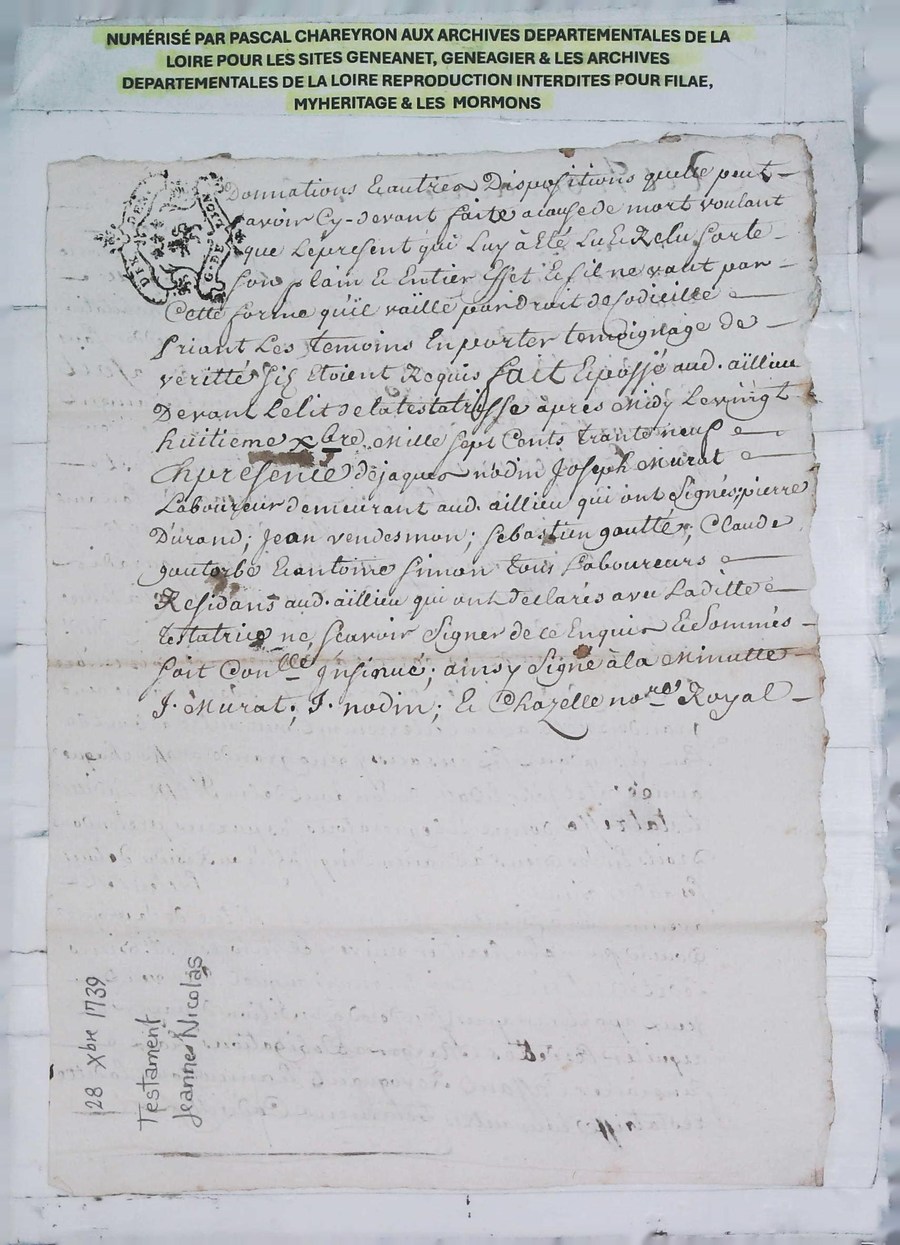 NUMÉRISÉ PAR PASCAL CHAREYRON AUX ARCHIVES DEPARTEMENTALES DE LA
LOIRE POUR LES SITES GENEANET, GENEAGIER & LES ARCHIVES
DEPARTEMENTALES DE LA LOIRE REPRODUCTION INTERDITES POUR FILAE,
MYHERITAGE & LES MORMONS
Donnations Et autres Dispositions quelle peut
avoir Cy-devant faite a cause de mort voulant
que Le present qui Luy à Eté Lu Et Relu sorte
son plain Et Entier Effet Et sil ne vaut par
Cette forme qu'il vaille par droit de Codicille
priant Les témoins En porter temoignage de
veritté sils Etoient Requis fait Et passé aud. aillieu
Devant Le lit de la testatrisse après midy Le vingt
huitieme xbre mille sept Cents trante neuf
En presence de jaques nodin Joseph Murat
Laboureur demeurant aud. aillieu qui ont Signés; pierre
Durand; Jean vendesmon; sebastien gouttes; Claude
goutorbe Et antoine simon tous Laboureurs
Residans aud. aillieu qui ont declarés avec Laditte
testatrice ne scavoir Signer de ce Enquis Et Sommés
soit Conlle jnsinué; ainsy Signé à la Minutte
J. Murat; J. nodin; Et Chazelle nore Royal
28 Xbre 1739
Testament
Jeanne Nicolas